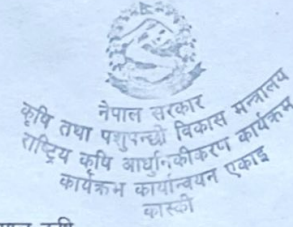 नेपाल सरकार
कृषि तथा पशुपन्छी विकास मन्त्रालय
राष्ट्रिय कृषि आधुनिकीकरण कार्यक्रम
कार्यक्रम कार्यान्वयन एकाइ
कास्की